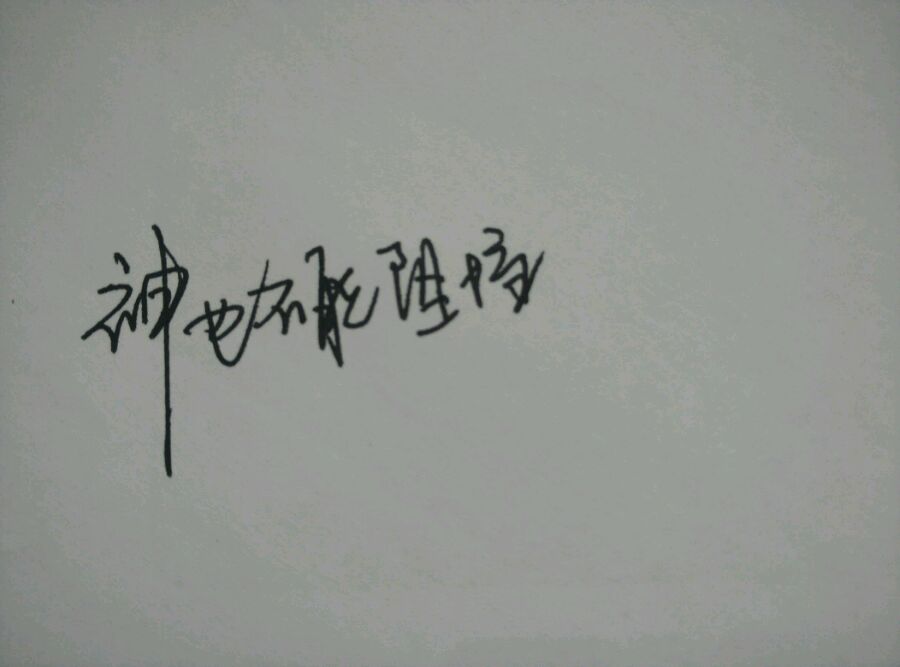 神也不能阻挡